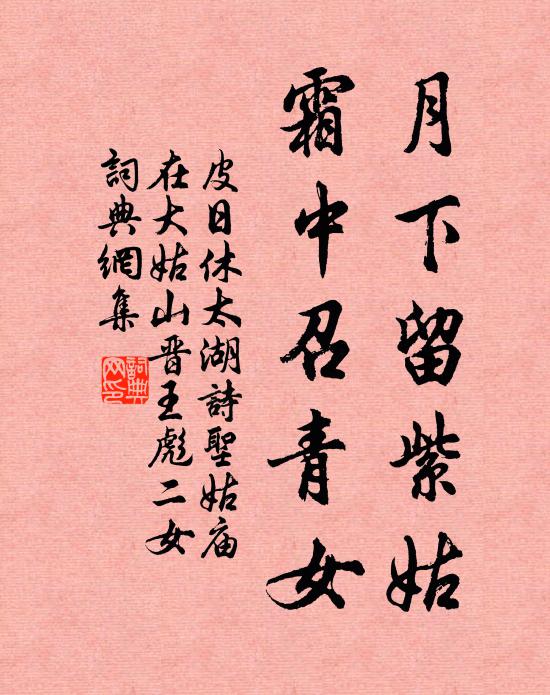 月下留紫姑
霜中召青女
皮日休太湖詩聖姑庙
在大姑山晋王彪二女
詞典網集
詞典
网印